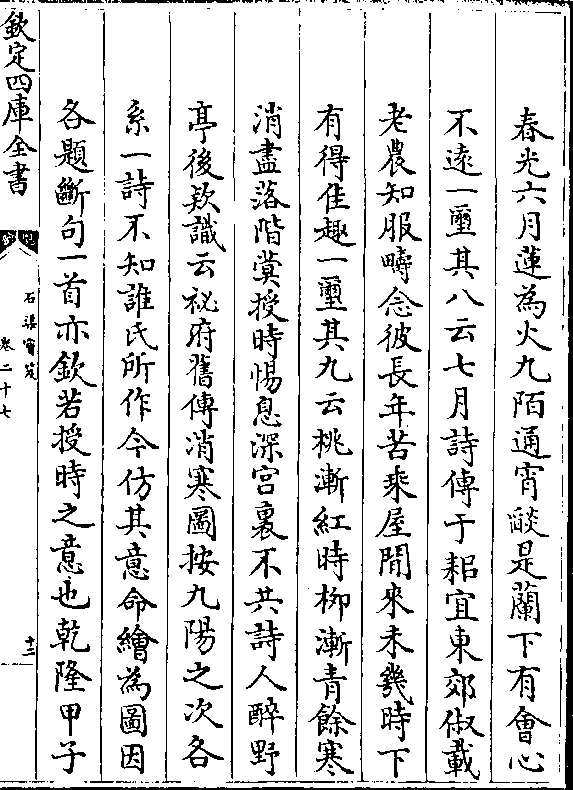 春光六月蓮為火九陌通宵燄是蘭下有會心
不遠一璽其八云七月詩傳于耜宜東郊俶載
老農知服疇念彼長年苦乗屋閒來未幾時下
有得佳趣一璽其九云桃漸紅時柳漸青餘寒
消盡落階蓂授時惕息深宫裏不共詩人醉野
亭後欵識云祕府舊傳消寒圖按九陽之次各
系一詩不知誰氏所作今仿其意命繪為圖因
各題斷句一首亦欽若授時之意也乾隆甲子
欽定四庫全書
石渠寶笈
卷二十七
十二